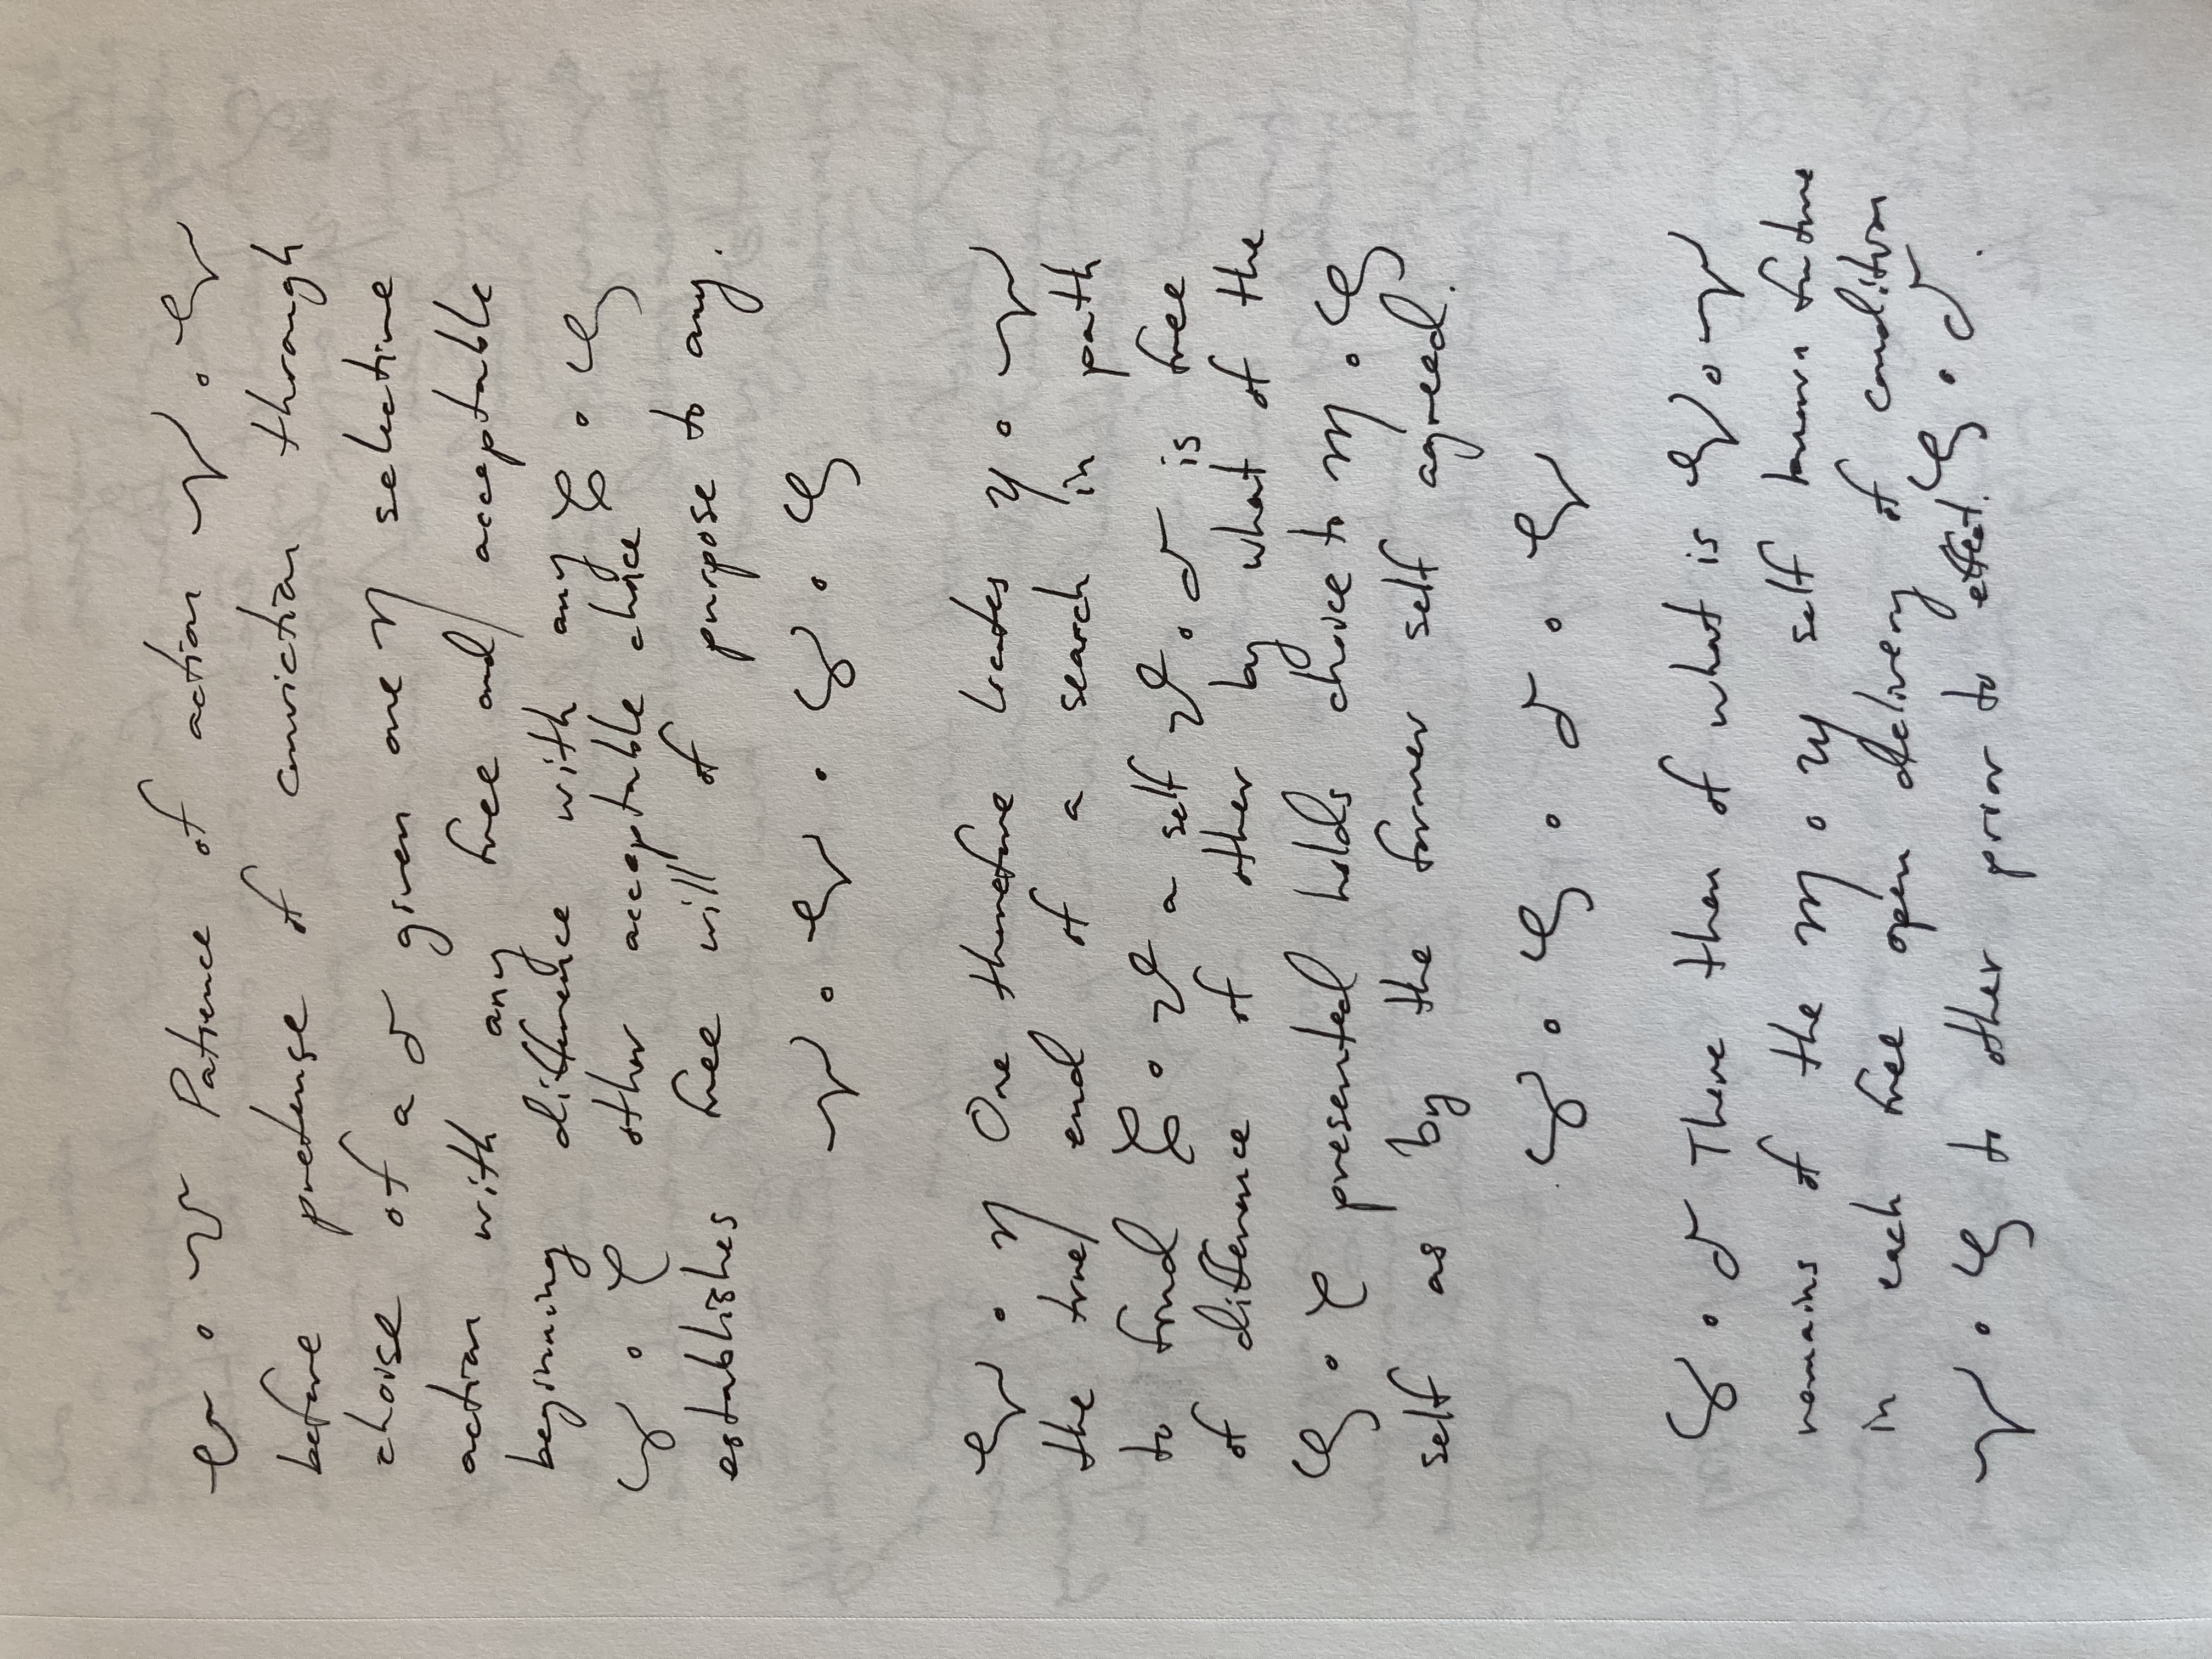 Patience of action
before pretense of conviction through
choise of a given one selective
action with any free and acceptable
beginning difference with any
other acceptable choice
establishes free will of purpose to any.
One therefore locates
the true end of a search in path
to found a self is free
of difference of other by what of the
presented holds choice to
self as by the former self agreed.
There then of what is
remains of the self known future
in each free open delivery of condition
to other prior to effect.